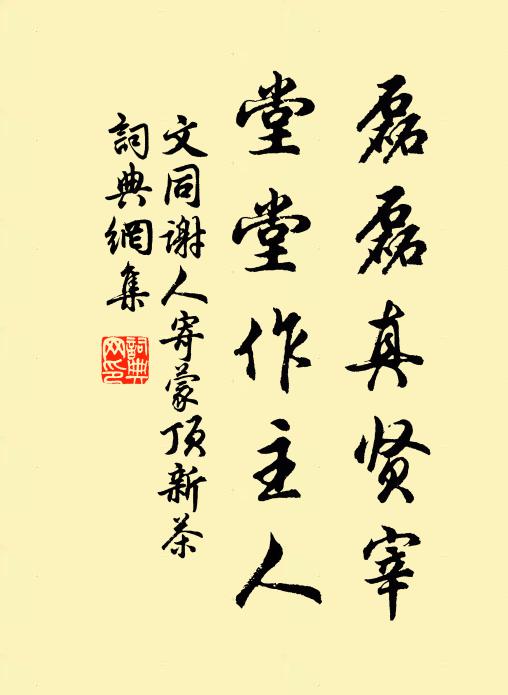 磊磊真贤宰
堂堂作主人
文同谢人寄蒙顶新茶
詞典網集
詞典网印